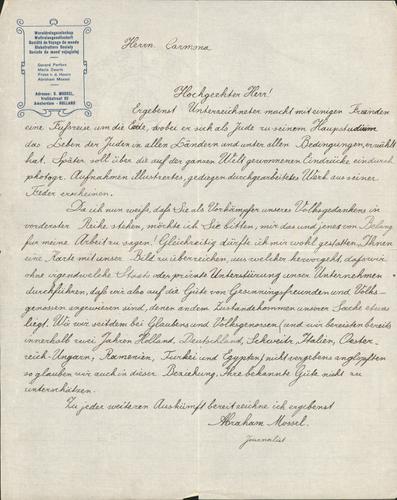 Wereldreisgezelschap
Weltreisegesellschaft
Société de Voyage du monde
Globetrotters Society
Societo de mond vojagistoj
Gerard Perfors
Maria Zwarts
Frans v. d. Hoorn
Abraham Mossel
Adresse: S. MOSSEL,
Amsterdam - HOLLAND
Herrn Carmona
Hochgeehrter Herr!
Ergebenst Unterzeichneter macht mit einigen Freunden
eine Fußreise um die Erde, wobei er sich als Jude zu seinem Hauptstudium
das Leben der Juden in allen Ländern und unter allen Bedingungen, erwählt
hat. Später soll über die auf der ganzen Welt gewonnenen Eindrücke ein durch
photogr. Aufnahmen illustrertes, gediegen durchgearbeitetes Werk aus seiner
Feder erscheinen.
Da ich nun weiß, daß Sie als Vorkämpfer unseres Volksgedankens in
vorderster Reihe stehen, möchte ich Sie bitten, mir das und jenes von Belang
für meine Arbeit zu sagen. Gleichzeitig dürfte ich mir wohl gestatten, Ihnen
eine Karte mit unser Bild zu überreichen, aus welcher hervorgeht daß wir
ohne irgendwelche Staats oder private Unterstützung unser Unternehmen
durchführen, daß wir also auf die Güte von Gesinnungsfreunden und Volks-
genossen angewiesen sind, denen am Zustandekommen unserer Sache etwas
liegt. Wo wir seitdem bei Glaubens und Volksgenossen (und wir bereisten bereits
innerhalb zwei Jahren Holland, Deutschland, Schweitz, Italien, Oester-
reich-Ungarn, Ramenien, Turkei und Egypten) nicht vergebens anglopften
so glauben wir auch in dieser Beziehung, Ihre bekannte Güte nicht zu
unterschätzen.
Zu jeder weiteren Auskümpft bereit zeichne ich ergebenst
Abraham Mossel.
Journalist